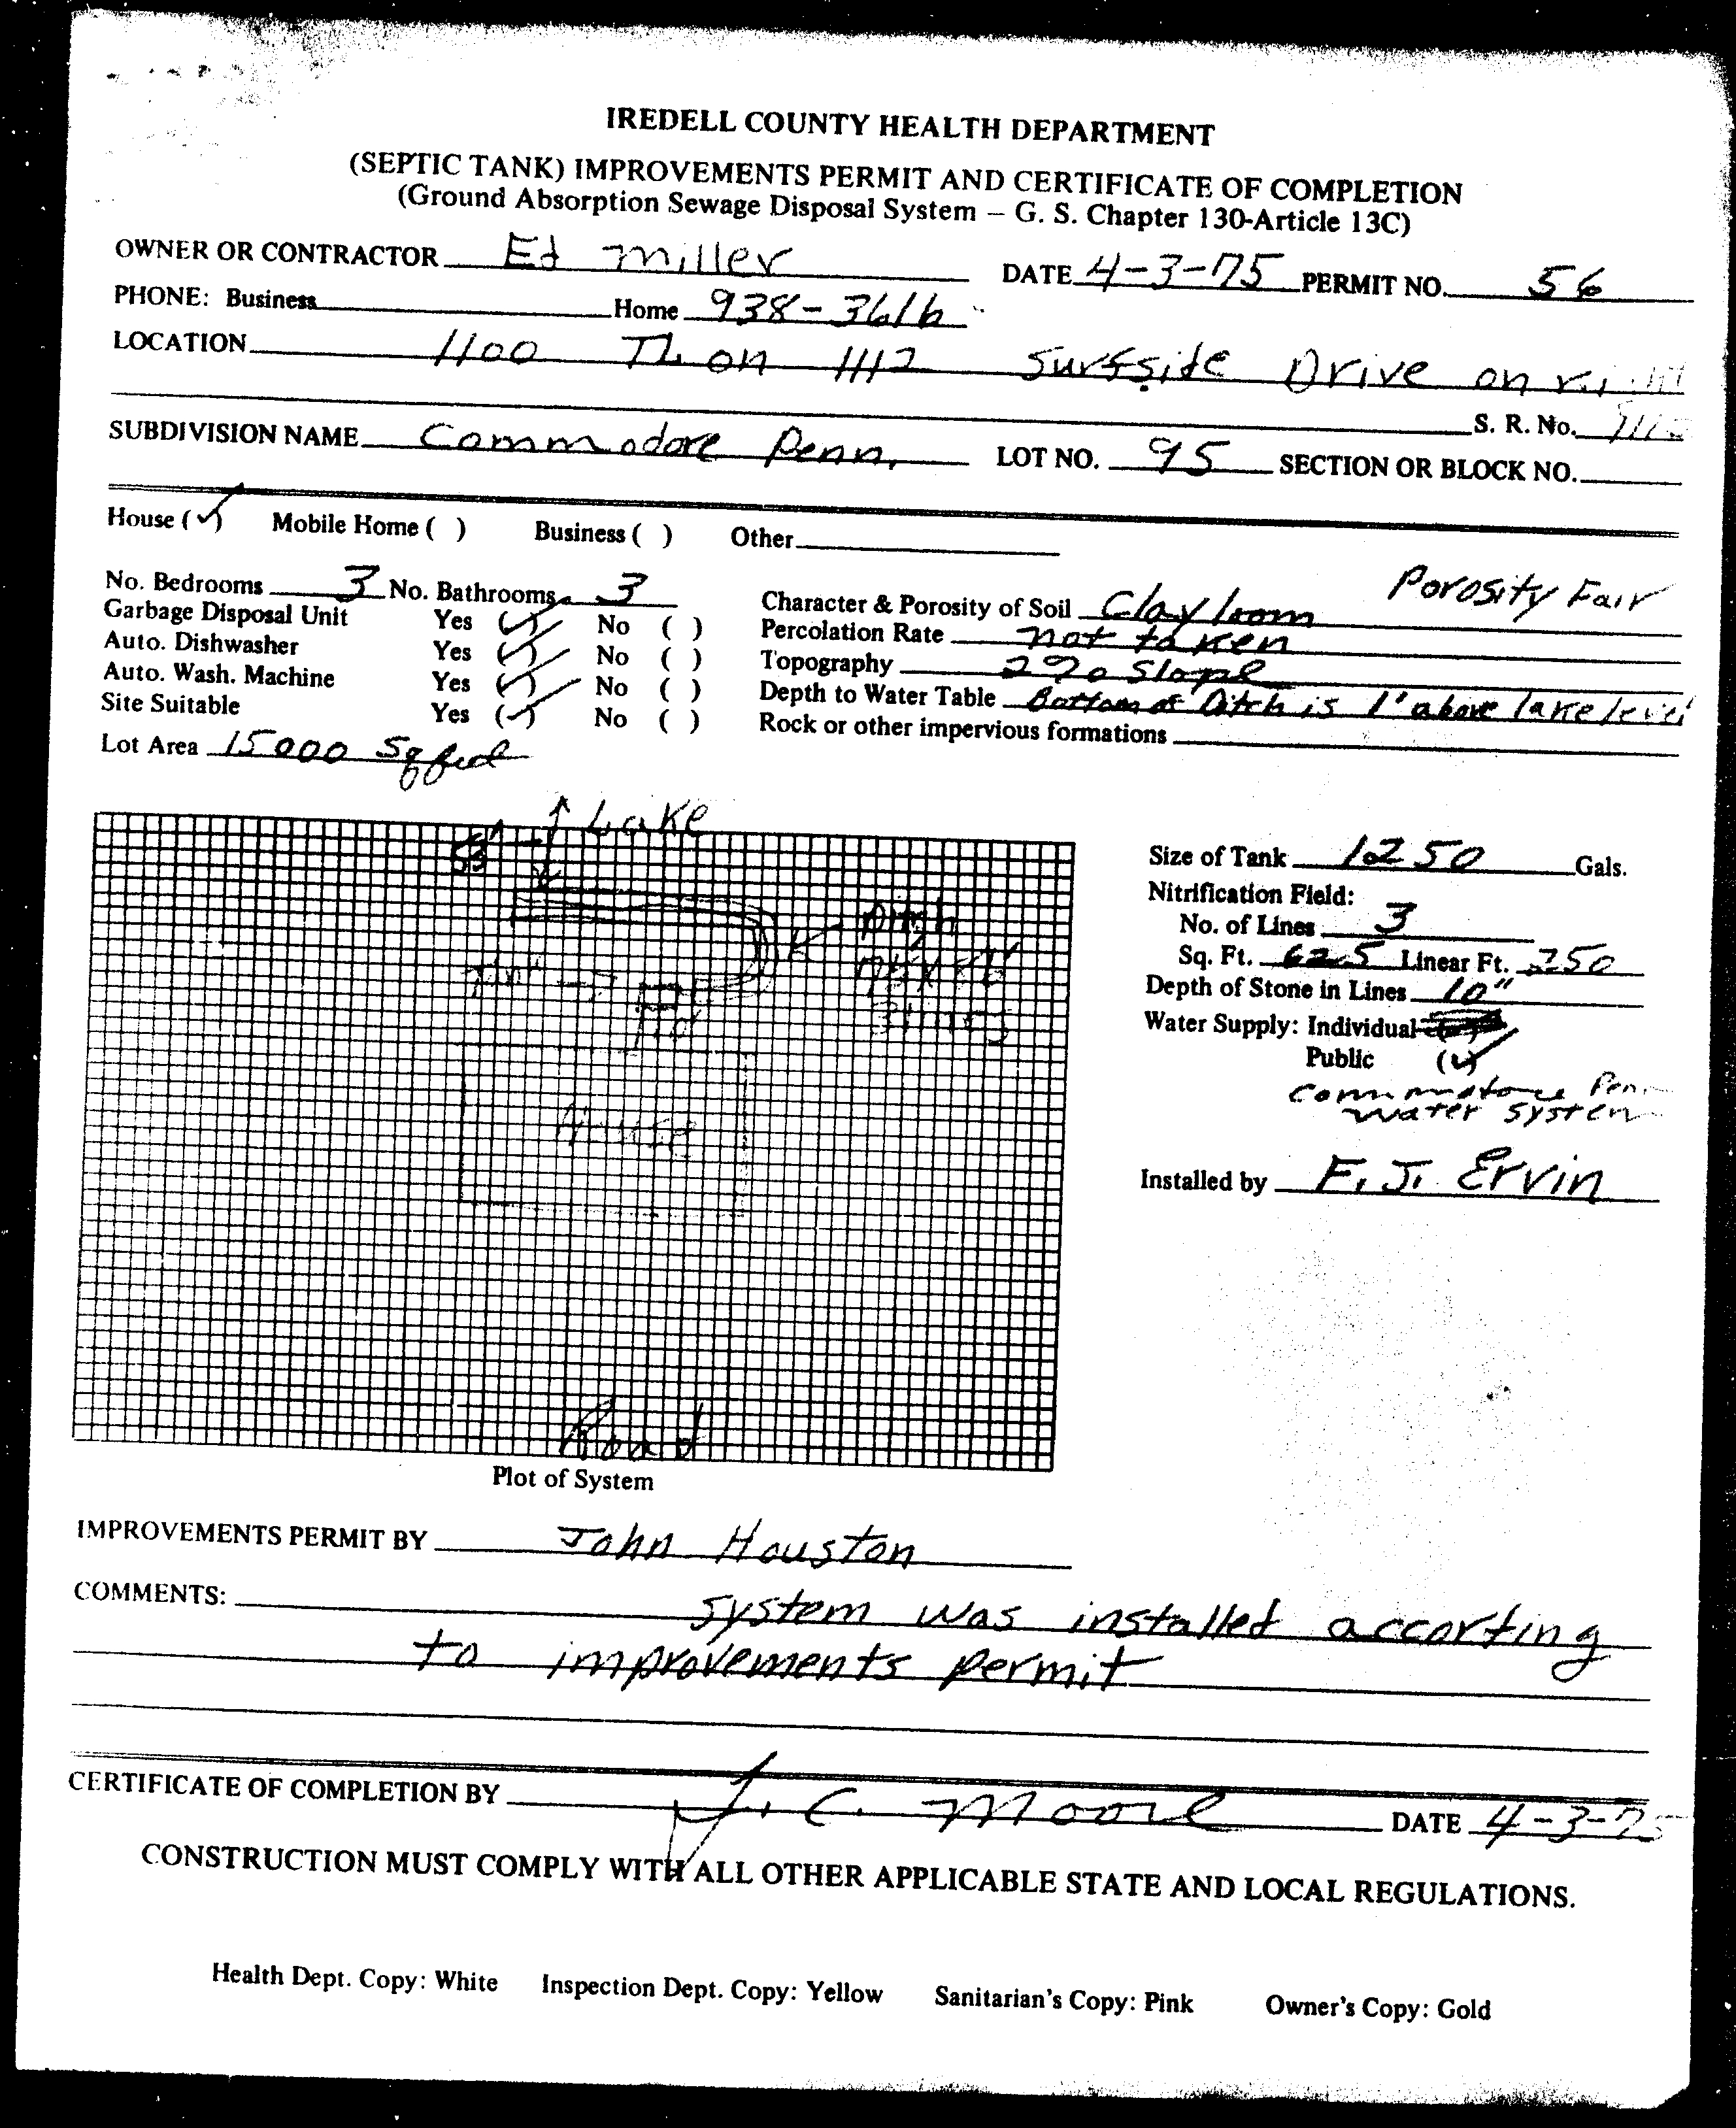 IREDELL COUNTY HEALTH DEPARTMENT
(SEPTIC TANK) IMPROVEMENTS PERMIT AND CERTIFICATE OF COMPLETION
(Ground Absorption Sewage Disposal System – G. S. Chapter 130-Article 13C)
OWNER OR CONTRACTOR Ed Miller DATE 4-3-75 PERMIT NO. 56
PHONE: Business Home 938-3616
LOCATION 1100 TL on 1112 Surfside Drive on right
S. R. No.
SUBDIVISION NAME Commodore Penn. LOT NO. 95 SECTION OR BLOCK NO.
House (✓) Mobile Home ( ) Business ( ) Other
Porosity Fair
No. Bedrooms 3 No. Bathrooms 3 Character & Porosity of Soil Clay loom
Garbage Disposal Unit Yes (✓) No ( ) Percolation Rate not taken
Auto. Dishwasher Yes (✓) No ( ) Topography 2% Slope
Auto. Wash. Machine Yes (✓) No ( ) Depth to Water Table Bottom of Ditch is 1' above lake level
Site Suitable Yes (✓) No ( ) Rock or other impervious formations
Lot Area 15000 Sq feet
Lake
Ditch
3 lines
Tank
House
Road
Plot of System
Size of Tank 1250 Gals.
Nitrification Field:
No. of Lines 3
Sq. Ft. 625 Linear Ft. 250
Depth of Stone in Lines 10"
Water Supply: Individual
Public (✓)
Commodore Penn
Water System
Installed by F. J. Ervin
IMPROVEMENTS PERMIT BY John Houston
COMMENTS: system was installed accorting
to improvements permit
CERTIFICATE OF COMPLETION BY J. C. Moore DATE 4-3-75
CONSTRUCTION MUST COMPLY WITH ALL OTHER APPLICABLE STATE AND LOCAL REGULATIONS.
Health Dept. Copy: White Inspection Dept. Copy: Yellow Sanitarian's Copy: Pink Owner's Copy: Gold